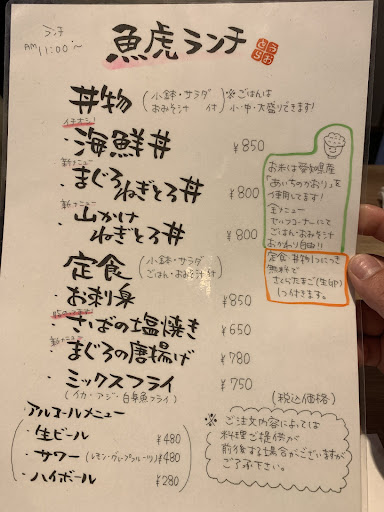 ランチ
AM 11:00〜
魚虎ランチ
うおとら
丼物 (小鉢・サラダ おみそ汁 付) ※ごはんは 小・中・大盛りできます!
イチオシ!
・海鮮丼 ¥850
新メニュー
・まぐろ
ねぎとろ丼 ¥800
新メニュー
・山かけ
ねぎとろ丼 ¥800
定食 (小鉢・サラダ ごはん・おみそ汁 付)
・お刺身 ¥850
・さばの塩焼き ¥650
新メニュー
・まぐろの唐揚げ ¥780
・ミックスフライ ¥750
(イカ・アジ・白身魚フライ)
(税込価格)
お米は愛知県産
「あいちのかおり」を
使用してます!
全メニュー
セルフコーナーにて
ごはん・おみそ汁
おかわり自由!!
定食・丼物1つにつき
無料で
さくらたまご(生卵)
1つ付きます。
アルコールメニュー
・生ビール ¥480
・サワー (レモン・グレープフルーツ) ¥480
・ハイボール ¥280
※ ご注文内容によっては
料理ご提供が
前後する場合がございますが
ご了承下さい。